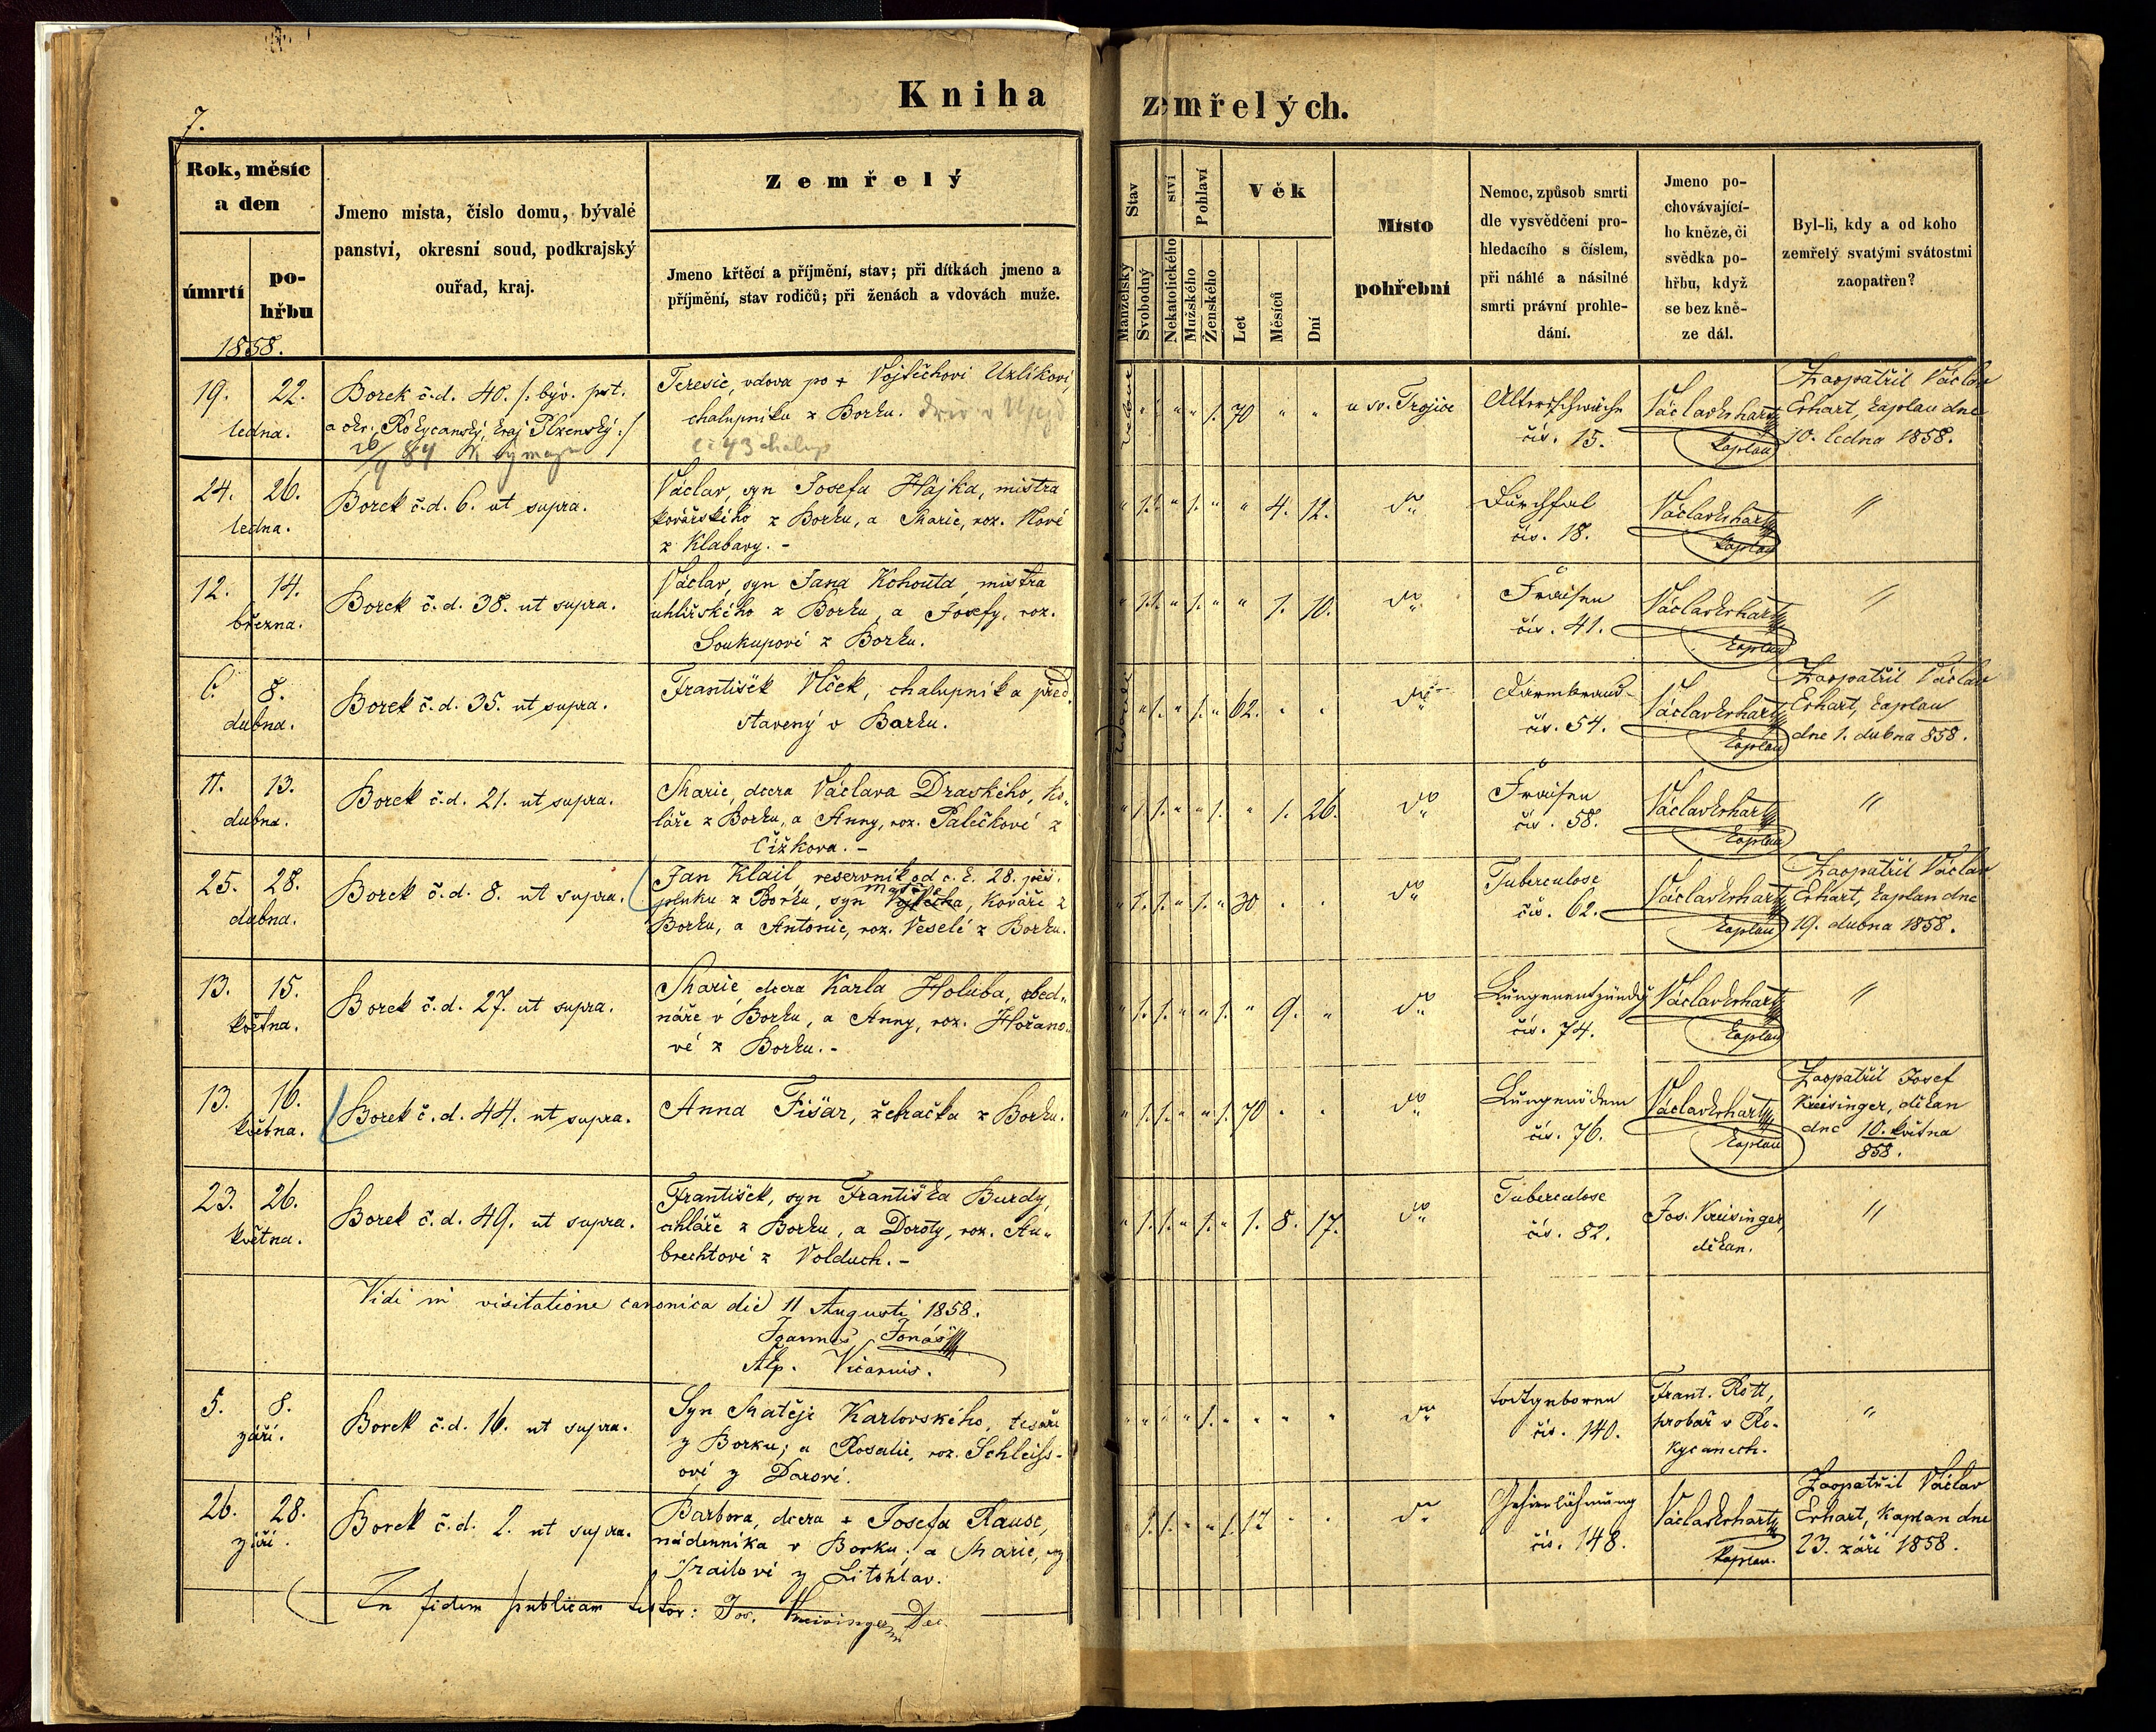 Kniha zemřelých.
7.
Rok, měsíc
a den
úmrtí
po-
hřbu
1858.
Jmeno místa, číslo domu, bývalé
panství, okresní soud, podkrajský
ouřad, kraj.
Zemřelý
Jmeno křtěcí a příjmění, stav; při dítkách jmeno a
příjmění, stav rodičů; při ženách a vdovách muže.
Stav
Manželský
Svobodný
ství
Nekatolického
Pohlaví
Mužského
Ženského
Věk
Let
Měsíců
Dní
Místo
pohřební
Nemoc, způsob smrti
dle vysvědčení pro-
hledacího s číslem,
při náhlé a násilné
smrti právní prohle-
dání.
Jmeno po-
chovávající-
ho kněze, či
svědka po-
hřbu, když
se bez kně-
ze dál.
Byl-li, kdy a od koho
zemřelý svatými svátostmi
zaopatřen?
19. 22.
ledna.
Borek č.d. 40. /: býv. pst.
a okr. Rokycanský, kraj Plzenský :/
Teresie, vdova po + Vojtěchovi Uzlíkovi,
chalupníku z Borku.
č 43 chalup
1. 70 " "
u sv. Trojice
Altersschwäche
čís. 15.
Václav Erhart
kaplan
Zaopatřil Václav
Erhart, kaplan dne
10. ledna 1858.
24. 26.
ledna.
Borek č.d. 6. ut supra.
Václav, syn Josefa Hájka, mistra
kovářského z Borku, a Marie, roz. Nové
z Klabavy. -
" 1. 1. " 1. " " 4. 12.
do
Durchfal
čís. 18.
Václav Erhart
kaplan
"
12. 14.
března.
Borek č.d. 38. ut supra.
Václav, syn Jana Kohouta, mistra
uhlířského z Borku, a Josefy, roz.
Soukupové z Borku.
" 1. 1. " 1. " " 1. 10.
do
Fraisen
čís. 41.
Václav Erhart
kaplan
"
6. 8.
dubna.
Borek č.d. 35. ut supra.
František Vlček, chalupník a před.
stavený v Borku.
" 1. " 1. " 62. " "
do
Darmbrand
čís. 54.
Václav Erhart
kaplan
Zaopatřil Václav
Erhart, kaplan
dne 1. dubna 858.
11. 13.
dubna.
Borek č.d. 21. ut supra.
Marie, dcera Václava Dravského, ko„
láře z Borku, a Anny, roz. Palečkové z
Čížkova. -
" 1. 1. " " 1. " 1. 26.
do
Fraisen
čís. 58.
Václav Erhart
kaplan
"
25. 28.
dubna.
Borek č.d. 8. ut supra.
Jan Klail, reservník od c. k. 28. pěš.
pluku z Borku, syn Vojtěcha, kováře z
Borku, a Antonie, roz. Veselé z Borku.
" 1. 1. " 1. " 30 " "
do
Tuberculose
čís. 62.
Václav Erhart
kaplan
Zaopatřil Václav
Erhart, kaplan dne
19. dubna 1858.
13. 15.
května.
Borek č.d. 27. ut supra.
Marie, dcera Karla Holuba, obed„
náře v Borku, a Anny, roz. Hořano„
vé z Borku. -
" 1. 1. " " 1. " 9. "
do
Lungenentzündg
čís. 74.
Václav Erhart
kaplan
"
13. 16.
května.
Borek č.d. 44. ut supra.
Anna Fišar, žebračka z Borku.
" 1. 1. " " 1. 70 " "
do
Lungenödem
čís. 76.
Václav Erhart
kaplan
Zaopatřil Josef
Kreisinger, děkan
dne 10. května
858.
23. 26.
května.
Borek č.d. 49. ut supra.
František, syn Františka Burdy,
cihláře z Borku, a Doroty, roz. Au„
brechtové z Volduch. -
" 1. 1. " 1. " 1. 8. 17.
do
Tuberculose
čís. 82.
Jos. Kreisinger,
děkan.
"
Vidi in visitatione canonica die 11 Augusti 1858.
Joannes Jonáš
Aep. Vicarius.
5. 8.
září.
Borek č.d. 16. ut supra.
Syn Matěje Karlovského, tesaře
z Borku; a Rosalie, roz. Schleiss-
ové z Darové.
" " " " 1. " " " "
do
todtgeboren
čís. 140.
Frant. Rott,
hrobař v Ro-
kycanech.
"
26. 28.
září.
Borek č.d. 2. ut supra.
Barbora, dcera + Josefa Rause,
nádenníka v Borku; a Marie, roz
Trailové z Litohlav.
" 1. 1. " " 1. 12 " "
do
Gehirnlähmung
čís. 148.
Václav Erhart
kaplan.
Zaopatřil Václav
Erhart, kaplan dne
23. září 1858.
In fidem publicam testor: Jos. Kreisinger Dec.